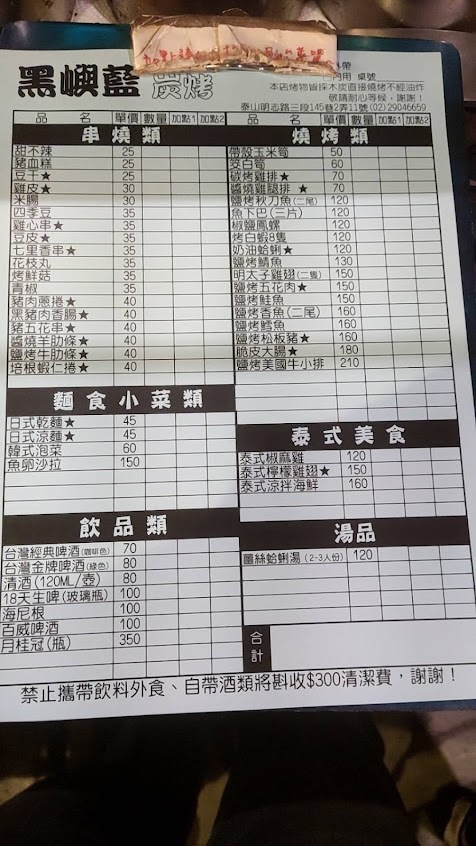 黑嶼藍 炭烤
外帶
內用 桌號
本店烤物皆採木炭直接燒烤不經油炸
敬請耐心等候，謝謝！
泰山明志路三段145巷2弄11號(02)29046659
品名 單價 數量 加點1 加點2
串燒類
甜不辣 25
豬血糕 25
豆干★ 25
雞皮★ 30
米腸 30
四季豆 35
雞心串★ 35
豆皮★ 35
七里香串★ 35
花枝丸 35
烤鮮菇 35
青椒 35
豬肉蔥捲★ 40
黑豬肉香腸★ 40
豬五花串★ 40
醬燒羊肋條★ 40
鹽烤牛肋條★ 40
培根蝦仁捲★ 40
麵食小菜類
日式乾麵★ 45
日式涼麵★ 45
韓式泡菜 60
魚卵沙拉 150
飲品類
台灣經典啤酒(咖啡色) 70
台灣金牌啤酒(綠色) 80
清酒(120ML/壺) 80
18天生啤(玻璃瓶) 100
海尼根 100
百威啤酒 100
月桂冠(瓶) 350
品名 單價 數量 加點1 加點2
燒烤類
帶殼玉米筍 50
筊白筍 60
碳烤雞排★ 70
醬燒雞腿排★ 70
鹽烤秋刀魚(二尾) 120
魚下巴(三片) 120
椒鹽鳳螺 120
烤白蝦8隻 120
奶油蛤蜊★ 120
鹽烤鯖魚 130
明太子雞翅(二隻) 150
鹽烤五花肉★ 150
鹽烤鮭魚 150
鹽烤香魚(二尾) 160
鹽烤鱈魚 160
鹽烤松板豬★ 160
脆皮大腸★ 180
鹽烤美國牛小排 210
泰式美食
泰式椒麻雞 120
泰式檸檬雞翅★ 150
泰式涼拌海鮮 160
湯品
薑絲蛤蜊湯(2-3人份) 120
合計
禁止攜帶飲料外食、自帶酒類將斟收$300清潔費，謝謝！